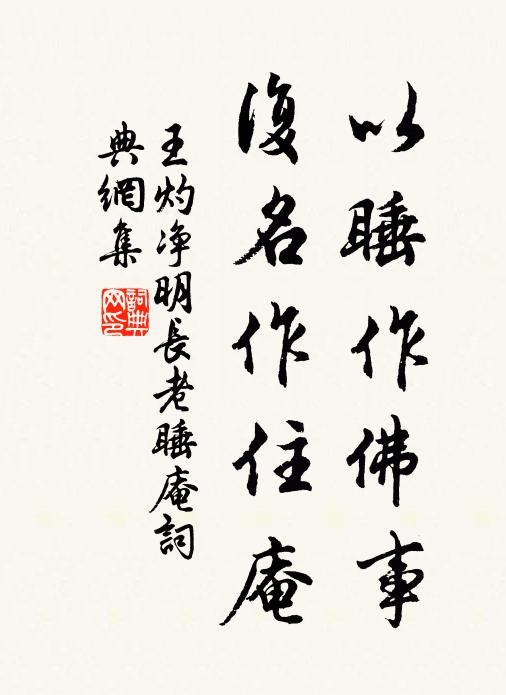 以睡作佛事
復名作住庵
王灼净明長老睡庵詞
典網集
詞典網印